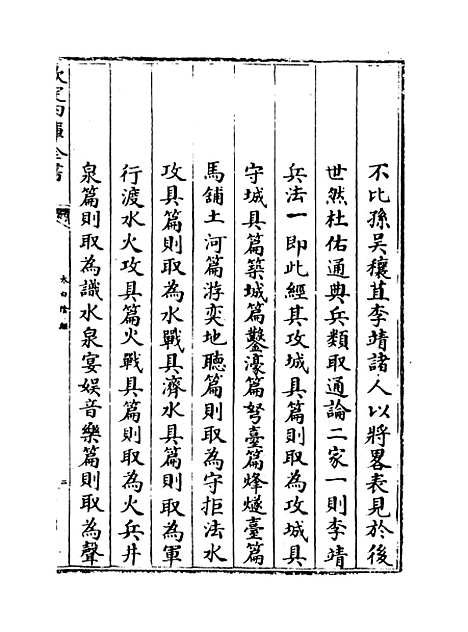 不比孫吳穰苴李靖諸人以將畧表見於後
世然杜佑通典兵類取通論二家一則李靖
兵法一即此經其攻城具篇則取為攻城具
守城具篇築城篇鑿濠篇弩臺篇烽燧臺篇
馬鋪土河篇游奕地聽篇則取為守拒法水
攻具篇則取為水戰具濟水具篇則取為軍
行渡水火攻具篇火戰具篇則取為火兵井
泉篇則取為識水泉宴娱音樂篇則取為聲
欽定四庫全書
太白陰經
二